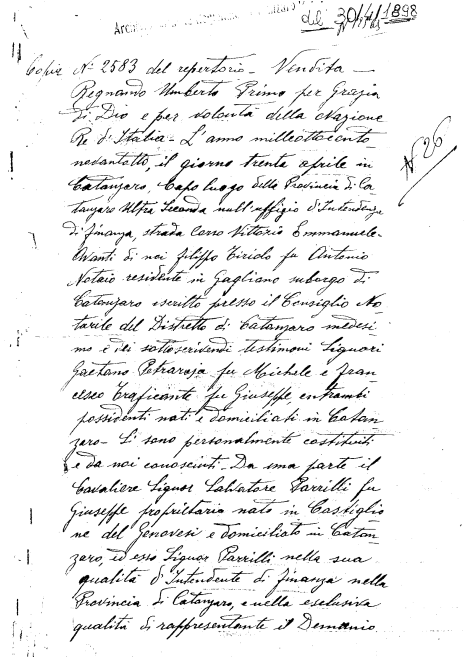 del 30/4/1898
Copia N° 2583 del repertorio - Vendita -
Regnando Umberto Primo per Grazia
di Dio e per volontà della Nazione
Re d'Italia - L'anno milleottocento
novantotto, il giorno trenta aprile in
Catanzaro, Capo luogo della Provincia di Ca-
N° 26
tanzaro Ultra Seconda nell'uffizio d'Intendenza
di finanza, strada Corso Vittorio Emmanuele -
Avanti di noi Filippo Tiriolo fu Antonio
Notaio residente in Gagliano suborgo di
Catanzaro iscritto presso il Consiglio No
tarile del Distretto di Catanzaro medesi
mo e dei sottoscrivendi testimoni Signori
Gaetano Petraroja fu Michele e Fran
cesco Traficante fu Giuseppe entrambi
possidenti nati e domiciliati in Catan
zaro - Si sono personalmente costituiti
e da noi conosciuti. Da una parte il
Cavaliere Signor Salvatore Parrilli fu
Giuseppe proprietario nato in Castiglio
ne del Genovesi e domiciliato in Catan
zaro, ed esso Signor Parrilli nella sua
qualità d'Intendente di finanza nella
Provincia di Catanzaro, e nella esclusiva
qualità di rappresentante il Demanio